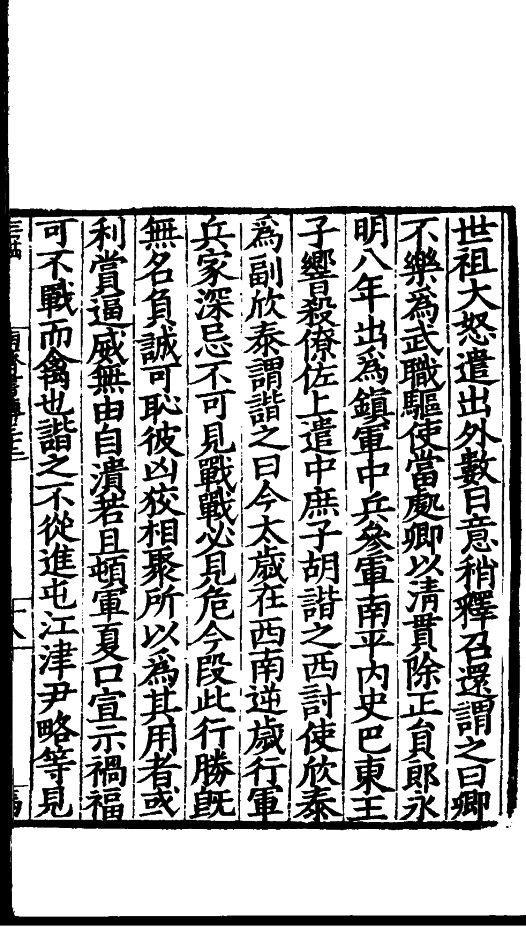 世祖大怒遣出外數日意稍釋召還謂之曰卿
不樂爲武職驅使當處卿以清貫除正員郎永
明八年出爲鎮軍中兵參軍南平內史巴東王
子響殺僚佐上遣中庶子胡諧之西討使欣泰
爲副欣泰謂諧之曰今太歲在西南逆歲行軍
兵家深忌不可見戰戰必見危今段此行勝旣
無名負誠可恥彼凶狡相聚所以爲其用者或
利賞逼威無由自潰若且頓軍夏口宣示禍福
可不戰而禽也諧之不從進屯江津尹略等見